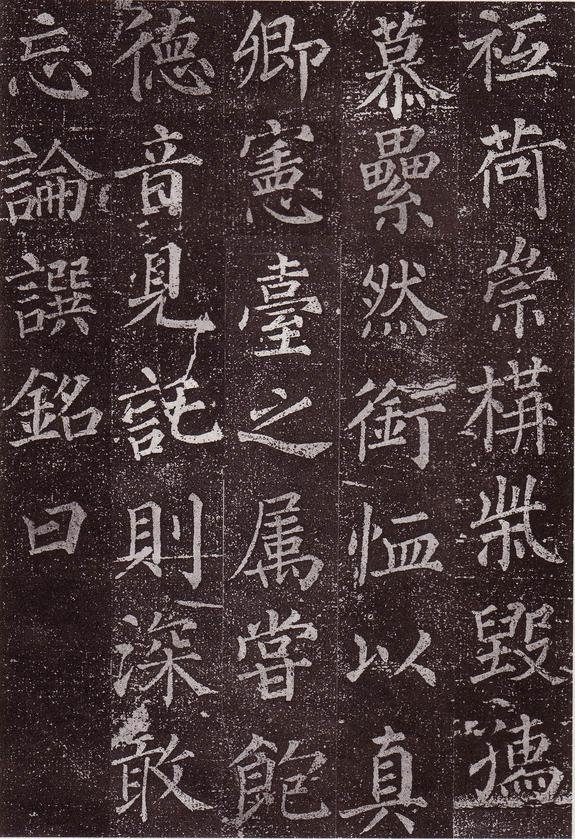 祗荷崇構柴毀
慕纍然銜恤以真
卿憲臺之属嘗飽
德音見託則深敢
忘論譔銘曰